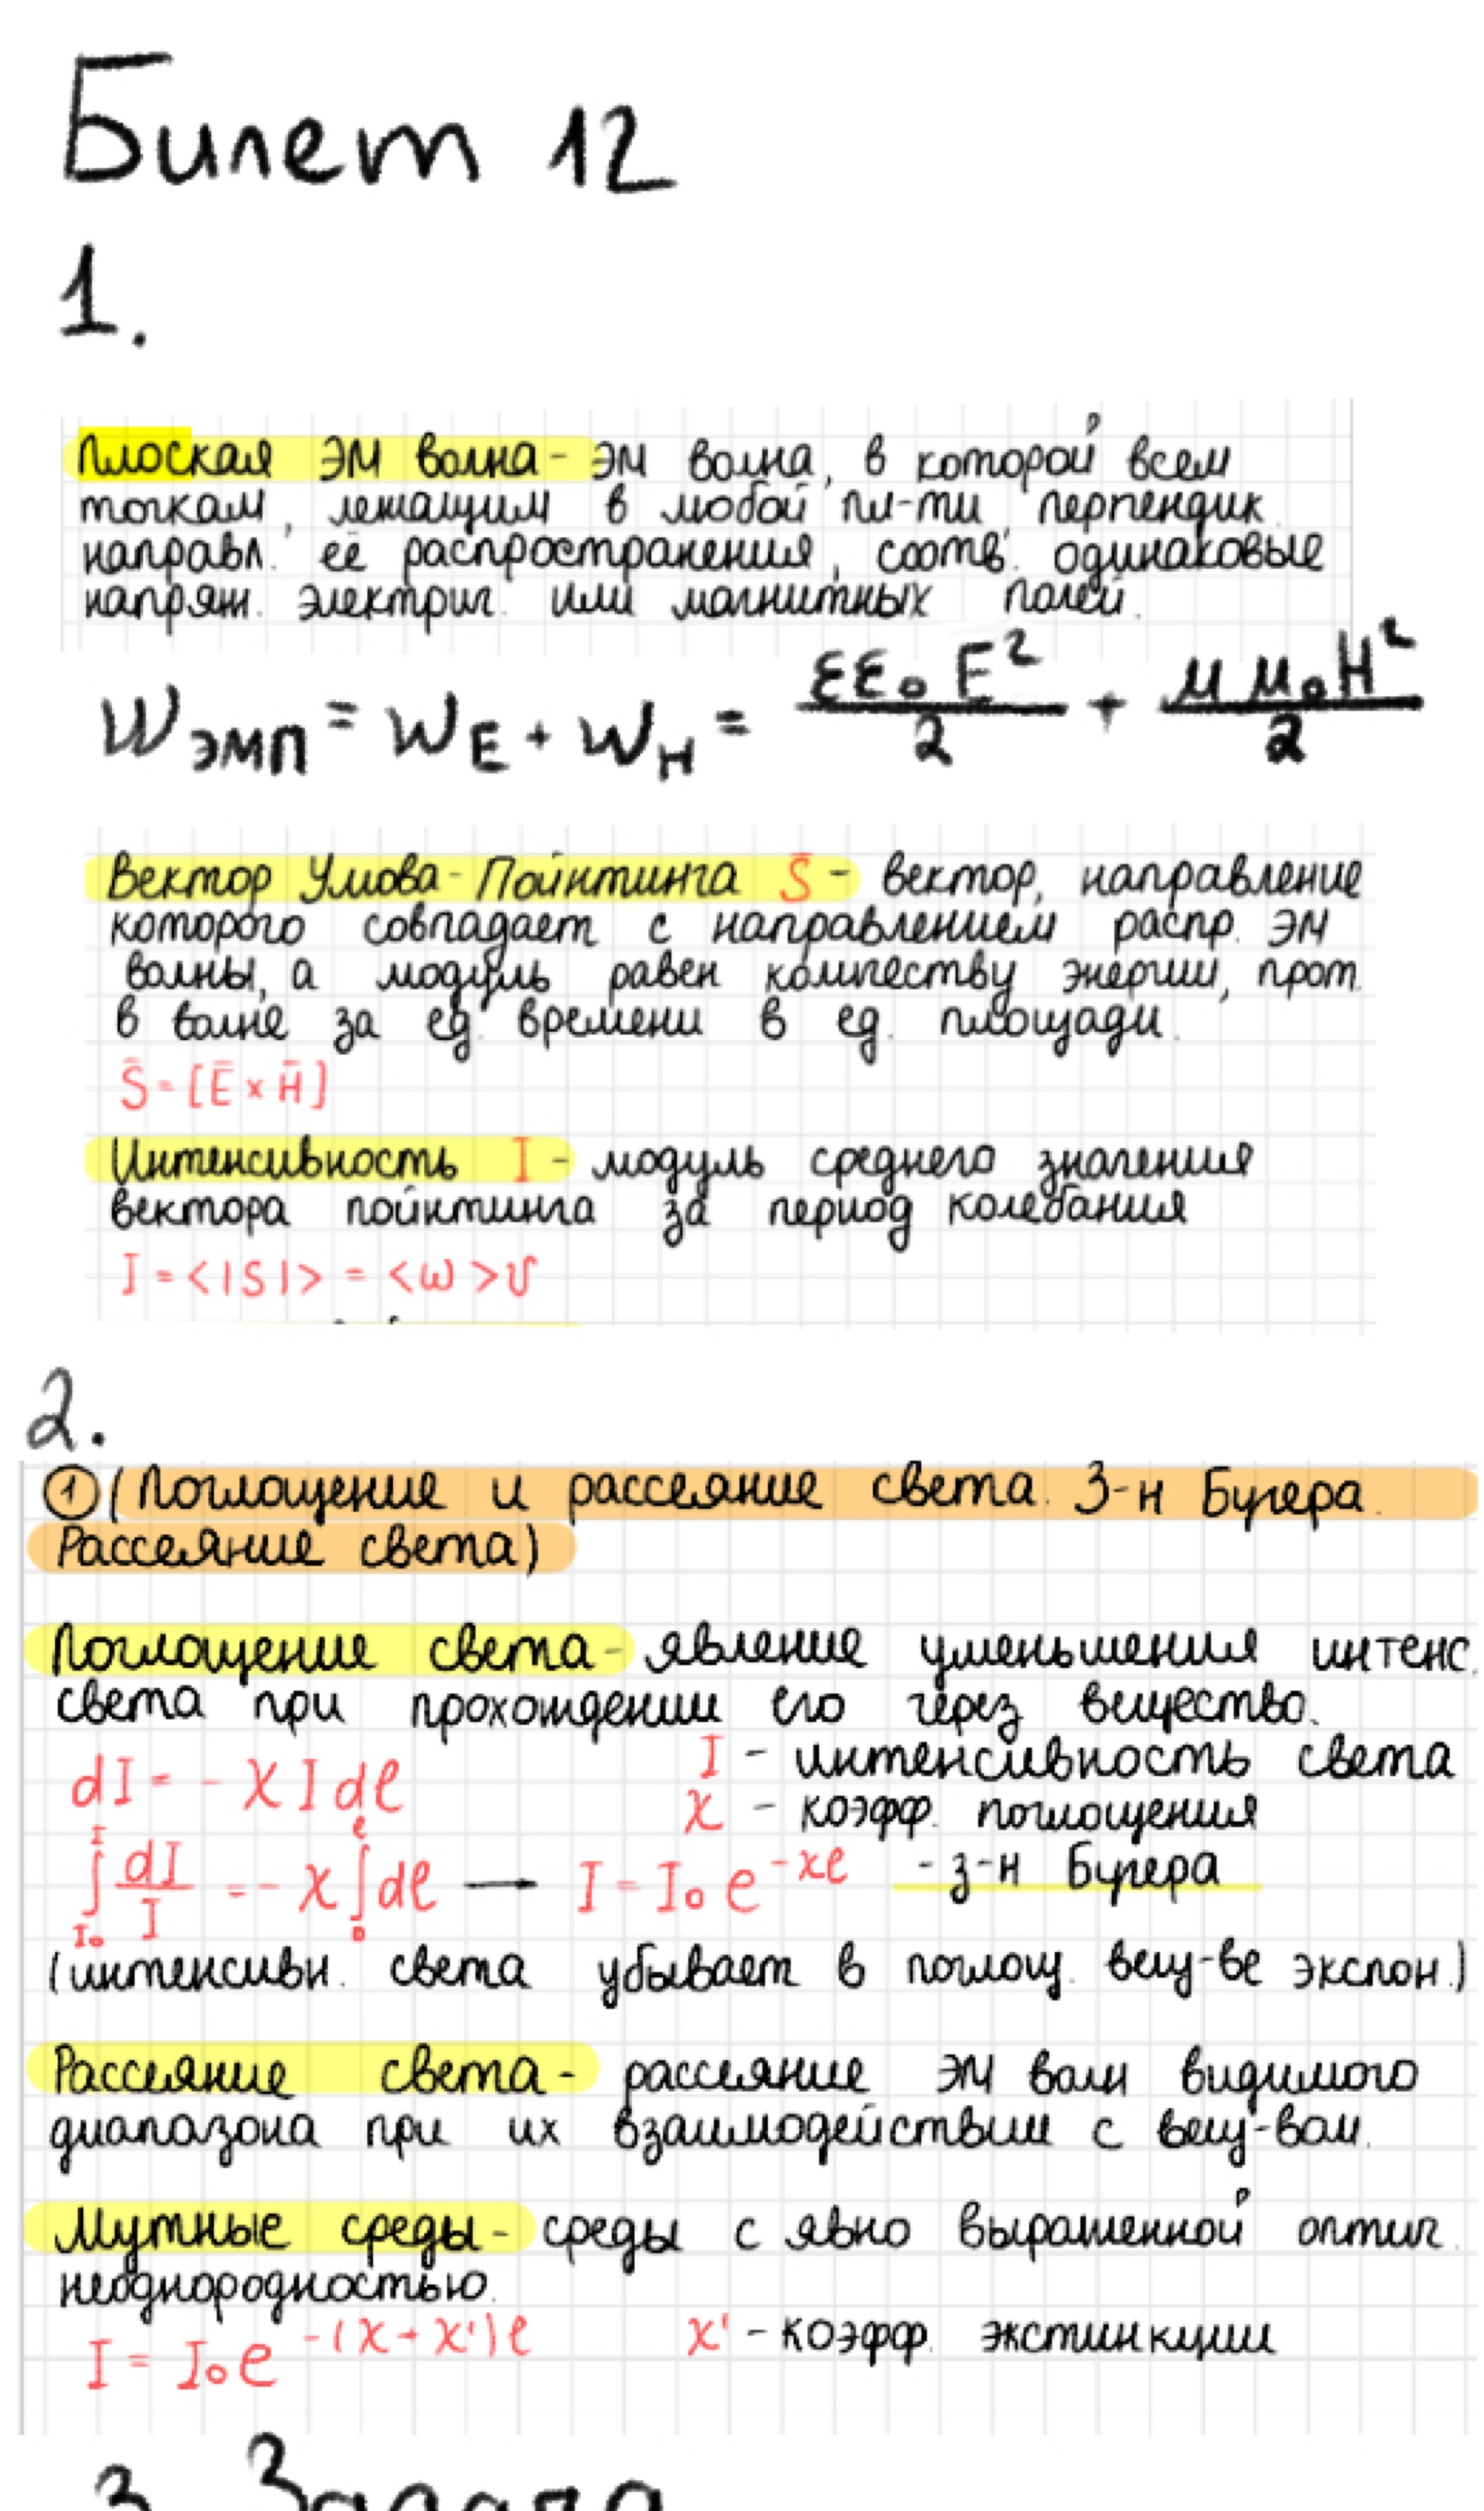 Билет 12
1.
Плоская ЭМ волна - ЭМ волна, в которой всем
точкам, лежащим в любой пл-ти, перпендик.
направл. её распространения, соотв. одинаковые
напряж. электрич. или магнитных полей.
W ЭМП = W E + W H = εε₀E²/2 + μμ₀H²/2
Вектор Умова-Пойнтинга S̄ - вектор, направление
которого совпадает с направлением распр. ЭМ
волны, а модуль равен количеству энергии, прот.
в волне за ед. времени в ед. площади.
S̄ = [Ē × H̄]
Интенсивность I - модуль среднего значения
вектора пойнтинга за период колебания
I = <|S|> = <ω>υ
2.
① (Поглощение и рассеяние света. З-н Бугера.
Рассеяние света)
Поглощение света - явление уменьшения интенс.
света при прохождении его через вещество.
dI = - χ I dl
I - интенсивность света
χ - коэфф. поглощения
∫_{I₀}^{I} dI/I = - χ ∫_{0}^{l} dl → I = I₀ e^{-χl} - з-н Бугера
(интенсивн. света убывает в поглощ. вещ-ве экспон.)
Рассеяние света - рассеяние ЭМ волн видимого
диапазона при их взаимодействии с вещ-вом.
Мутные среды - среды с явно выраженной оптич.
неоднородностью.
I = I₀ e^{-(χ + χ')l} χ' - коэфф. экстинкции
3. Задача